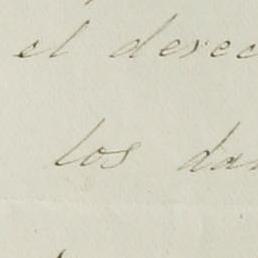 el derec
los da